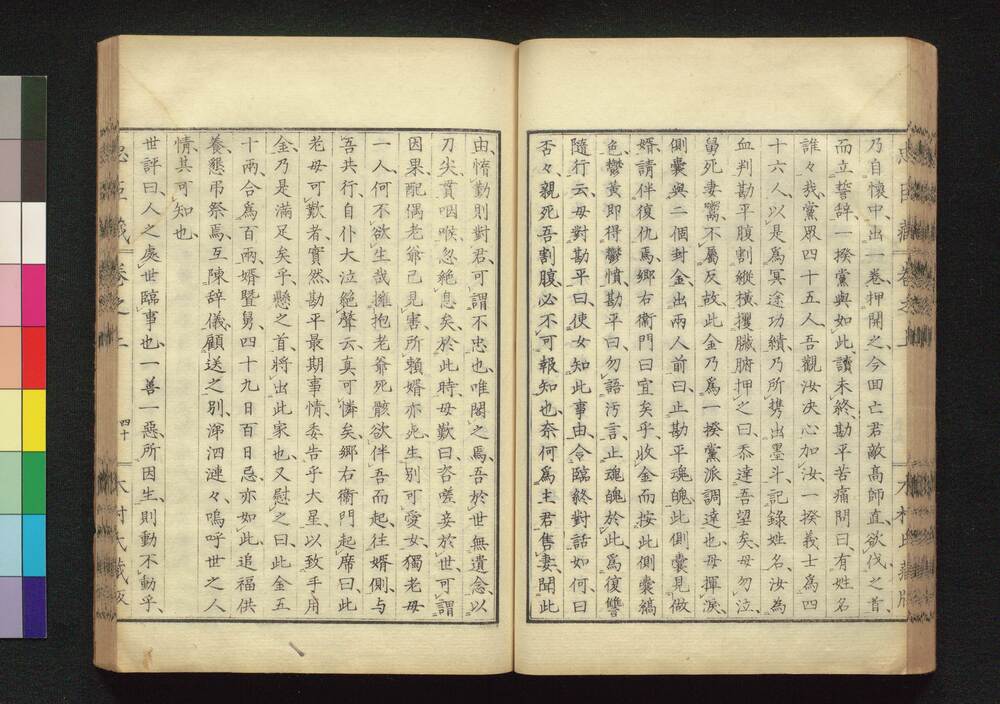 乃自懷中出一卷押開之今回亡君敵高師直欲伐之首
而立誓辭一揆黨與如此讀未終勘平苦痛問曰有姓名
誰々我黨眾四十五人吾觀汝决心加汝一揆義士為四
十六人以是為冥途功績乃所携出墨斗記錄姓名汝為
血判勘平腹割縱橫攫臟腑押之曰忝達吾望矣母勿泣
舅死妻鬻不屬反故此金乃為一揆黨派調達也母揮淚
側囊與二個封金出兩人前曰止勘平魂魄此側囊見做
婿請伴復仇焉鄉右衞門曰宜矣乎收金而按此側囊縞
色鬱黄即得鬱憤勘平曰勿語汚言止魂魄於此為復讐
隨行云母對勘平曰使女知此事由令臨終對話如何曰
否々親死吾割腹必不可報知也奈何為主君售妻聞此
由惰勤則對君可謂不忠也唯閣之焉吾於世無遺念以
刀尖貫咽喉忽絶息矣於此時母歎曰咨嗟妾於世可謂
因果配偶老爺已見害所賴婿亦死生别可愛女獨老母
一人何不欲生哉擁抱老爺死骸欲伴吾而起往婿側與
吾共行自仆大泣絶聲云真可憐矣鄉右衞門起席曰此
老母可歎者實然勘平最期事情委告乎大星以致手用
金乃是滿足矣乎懸之首將出此家也又慰之曰此金五
十兩合為百兩婿曁舅四十九日百日忌亦如此追福供
養懇弔祭焉互陳辭儀顧送之别涕泗漣々嗚呼世之人
情其可知也
世評曰人之處世臨事也一善一惡所因生則動不動乎
忠臣藏 卷之上 四十 木村氏藏版